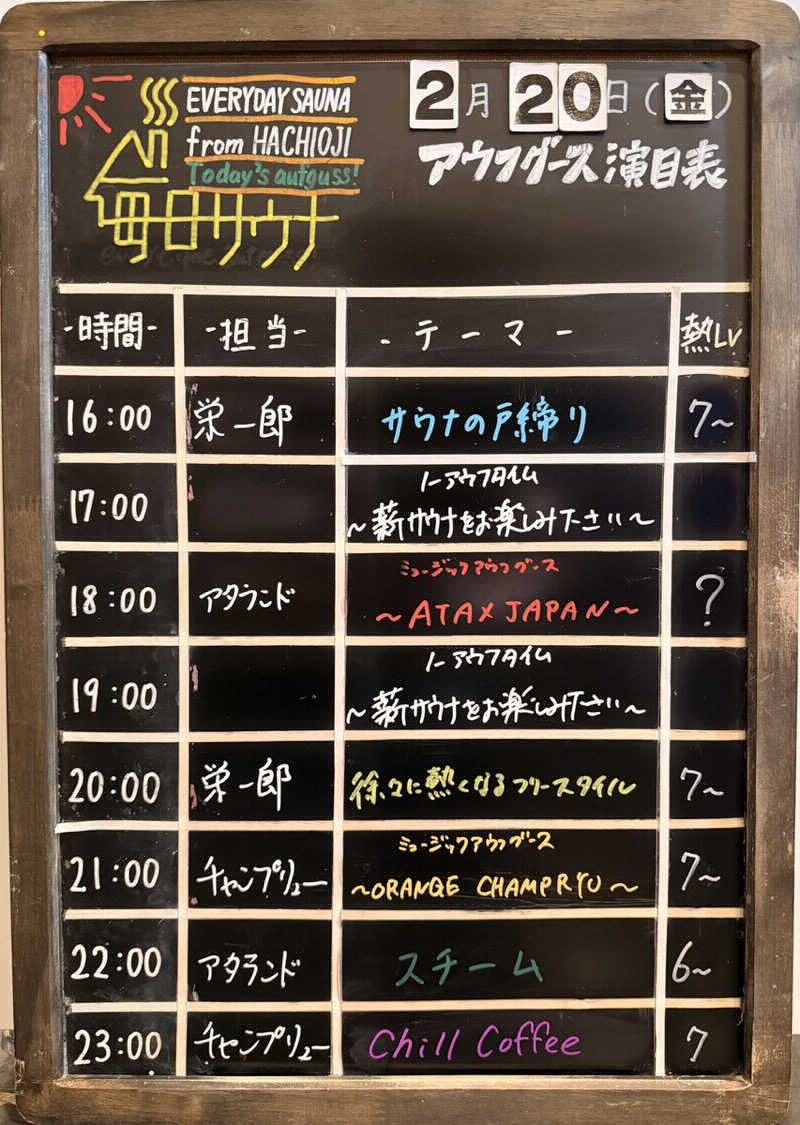 EVERYDAY SAUNA
from HACHIOJI
Today's aufguss!
毎日サウナ
2月20日(金)
アウフグース演目表
-時間- -担当- -テーマ- 熱Lv
16:00 栄一郎 サウナの戸締り 7~
17:00 ノーアウフタイム
~薪サウナをお楽しみ下さい~
18:00 アタランド ミュージックアウフグース
~ATAX JAPAN~ ?
19:00 ノーアウフタイム
~薪サウナをお楽しみ下さい~
20:00 栄一郎 徐々に熱くなるフリースタイル 7~
21:00 チャンプリュー ミュージックアウフグース
~ORANGE CHAMPRYU~ 7~
22:00 アタランド スチーム 6~
23:00 チャンプリュー Chill Coffee 7